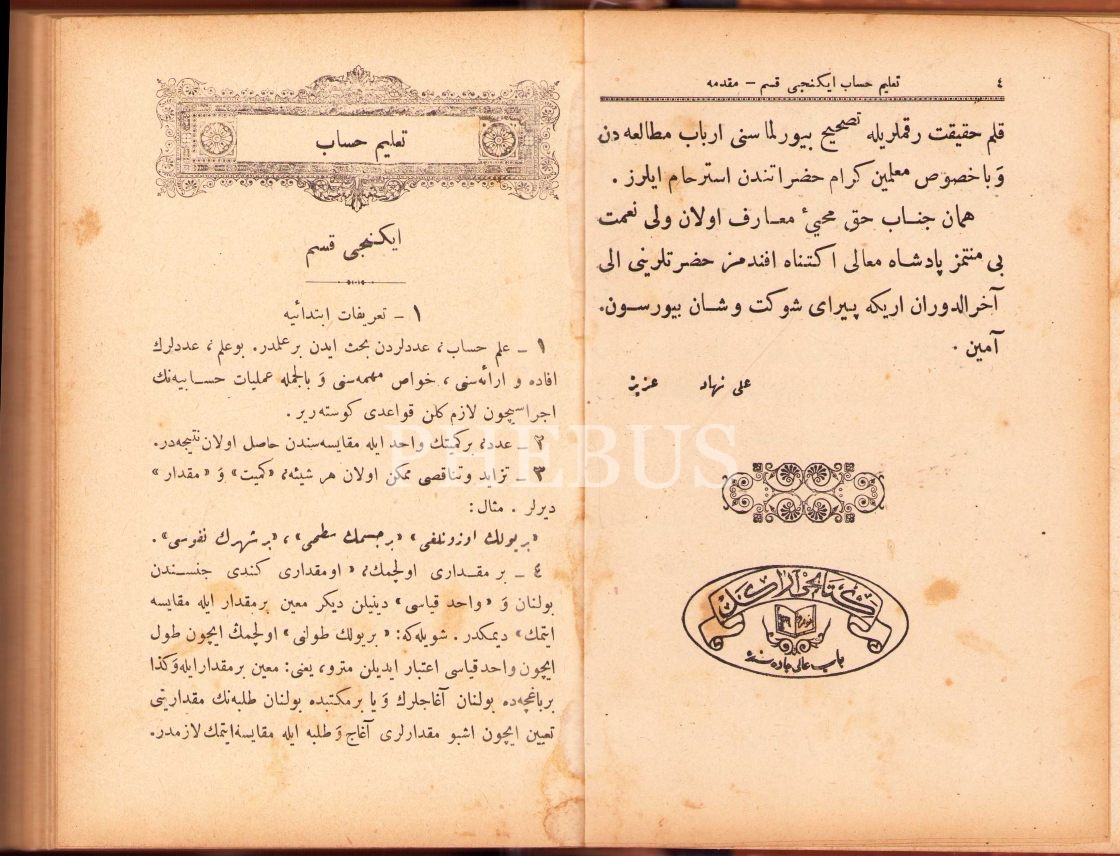 ٤
تعليم حساب ايكنجى قسم — مقدمه
قلم حقيقت رقملريله تصحيح بيورلماسنى ارباب مطالعه‌دن
وَباخصوص معلمين كرام حضراتندن استرحام ايلرز .
همان جناب حق محيئ معارف اولان ولى نعمت
بى منتمز پادشاه معالى اكتناه افندمز حضرتلرينى الى
آخرالدوران اريكه پيراى شوكت وشان بيورسون.
آمين .
على نهاد عزيز
كتابخانۀ آراكل
باب عالى جاده‌سنده
تعليم حساب
ايكنجى قسم
١ – تعريفات ابتدائيه
١ – علم حساب، عددلردن بحث ايدن برعلمدر. بوعلم، عددلرك
افاده و ارائه‌سنى، خواص مهمه‌سنى وَ بالجمله عمليات حسابيه‌نك
اجراسيچون لازم كلن قواعدى كوسته‌رير.
٢ – عدد، بركميتك واحد ايله مقايسه‌سندن حاصل اولان نتيجه‌در.
٣ – تزايد وتناقصى ممكن اولان هر شيئه، «كميت» وَ «مقدار»
ديرلر . مثال:
«بريولك اوزونلغى» «برجسمك سطحى»، «بر شهرك نفوسى».
٤ – بر مقدارى اولچمك، «اومقدارى كندى جنسندن
بولنان وَ «واحد قياسى» دينيلن ديكر معين برمقدار ايله مقايسه
ايتمك» ديمكدر . شويله‌كه: «بريولك طولنى» اولچمك ايچون طول
ايچون واحدقياسى اعتبار ايديلن مترو، يعنى: معين برمقدارايله‌وَكذا
برباغچه‌ده بولنان آغاجلرك وَيا برمكتبده بولنان طلبه‌نك مقدارينى
تعيين ايچون اشبو مقدارلرى آغاج وَطلبه ايله مقايسه‌ايتمك‌لازمدر.
PHEBUS